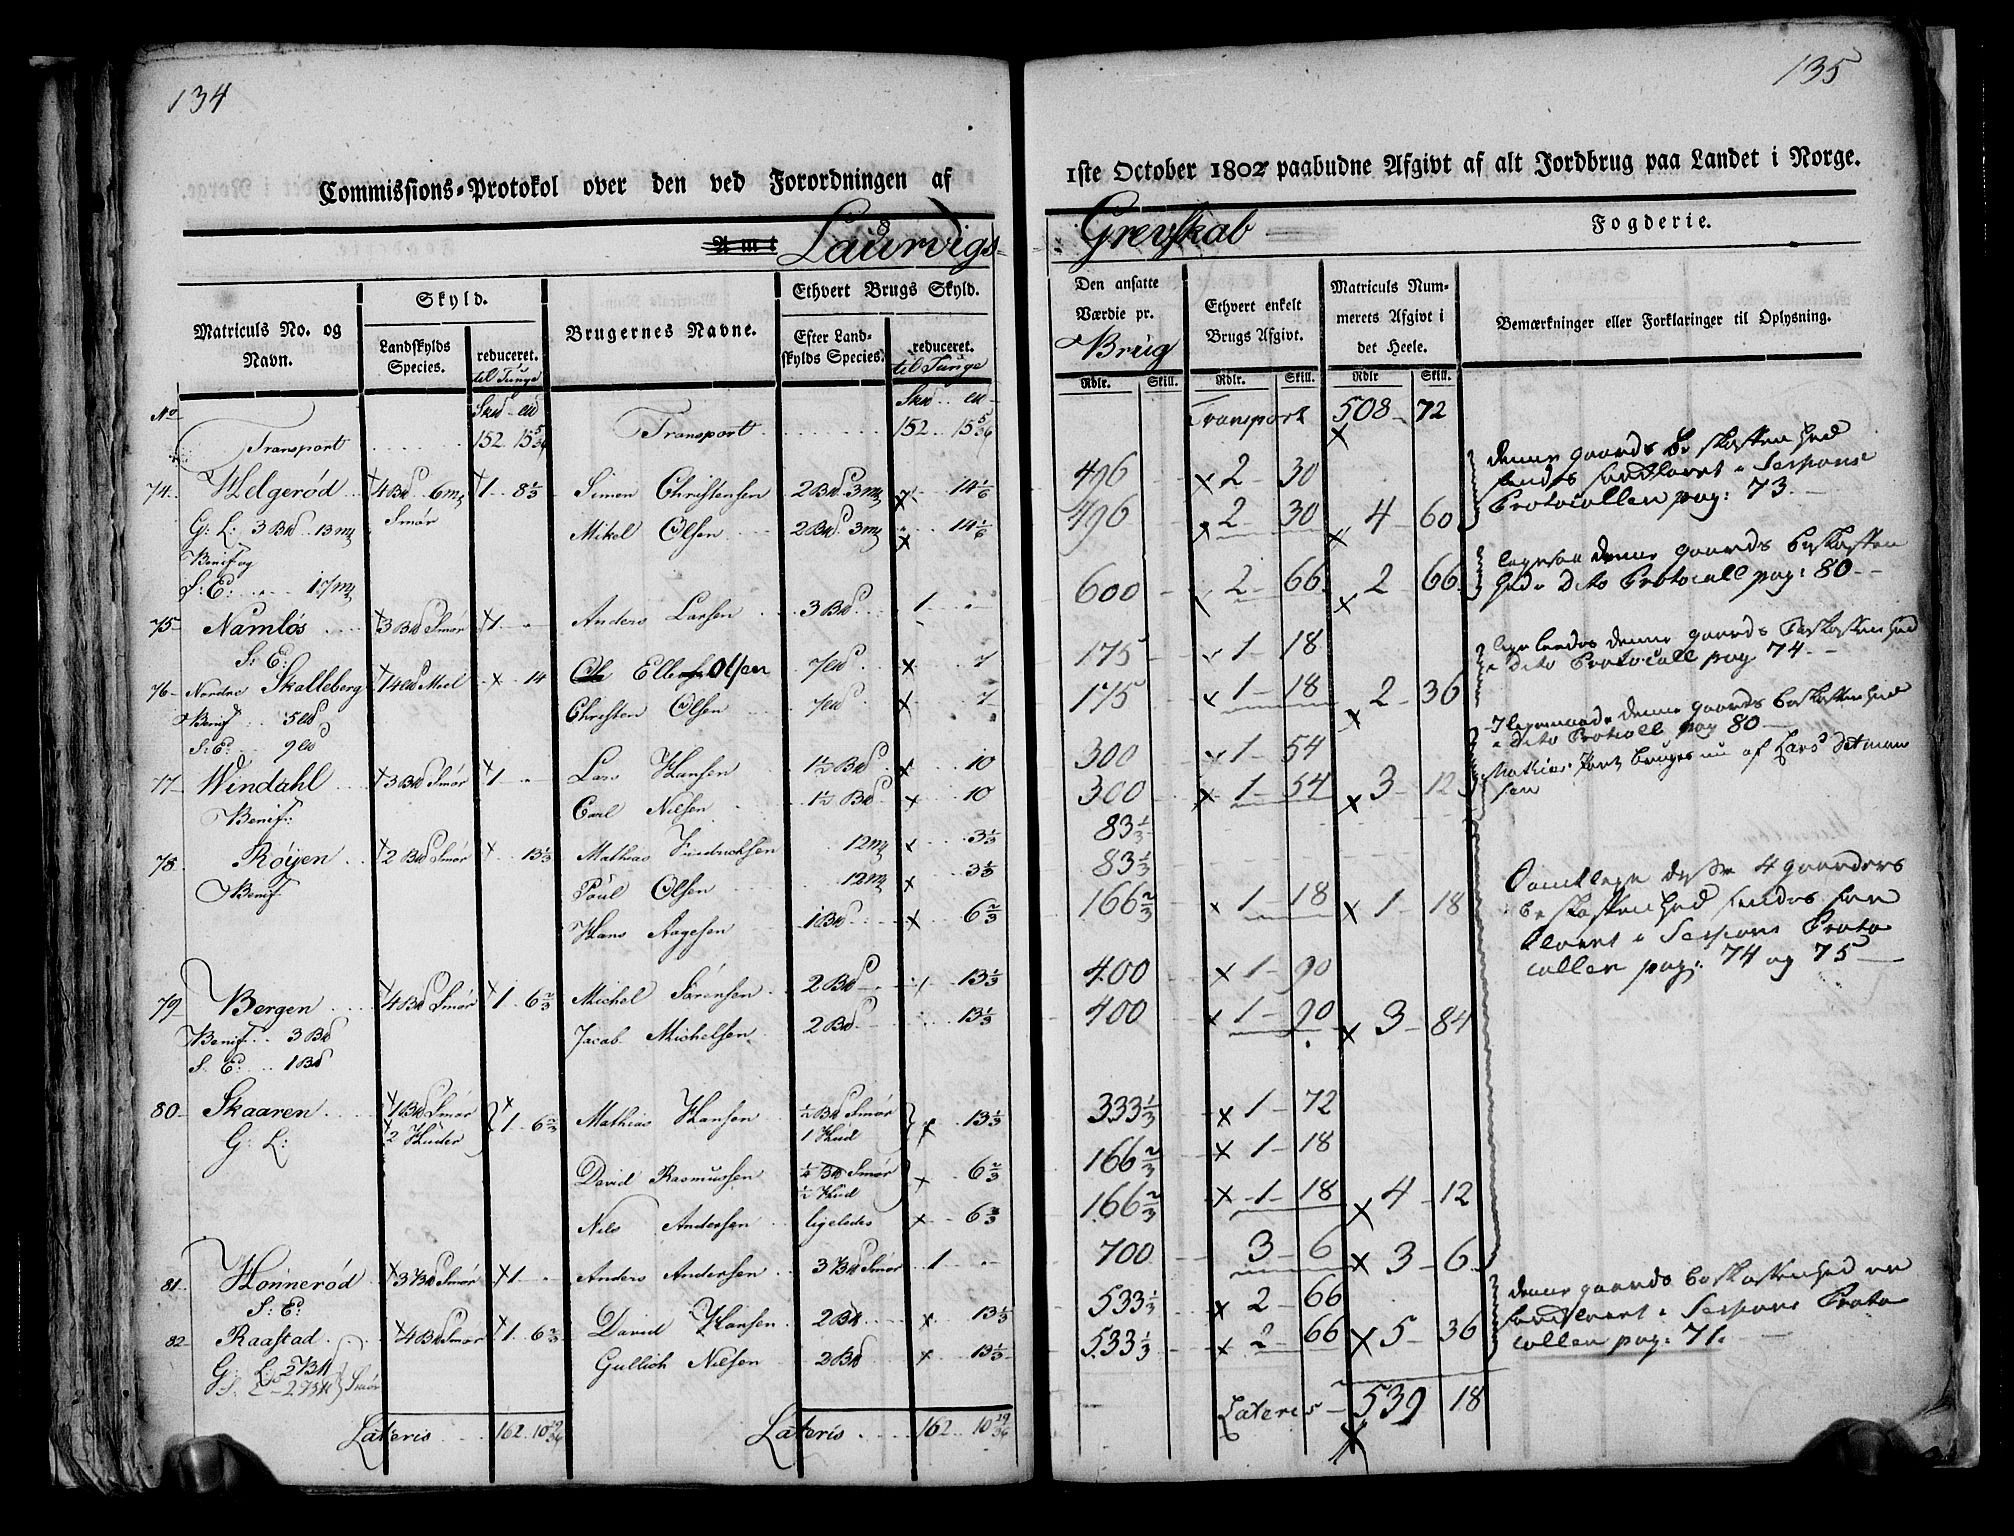 134
Commissions-Protokol over den ved Forordningen af
Amt Laurvigs-
Matriculs No. og Navn.
Skyld.
Landskylds Species.
reduceret. til Tunge
Brugernes Navne.
Ethvert Brugs Skyld.
Efter Landskylds Species.
reduceret. til Tunge
No
Transport . . . . . 152 15 5/36 Transport . . . . . 152 .. 15 5/36
74. Helgerød .. 4 Bd 6 mk 1 .. 8 1/3 Simen Christensen 2 Bd 3 mk .. 14 1/6
G: L: 3 Bd .. 13 mk Smør Mikel Olsen 2 Bd 3 mk .. 14 1/6
Benif og
S: E: .. 17 mk
75 Namløs .... 3 Bd Smør 1 .. Anders Larsen .. 3 Bd .. 1 ..
S: E:
76 Nordre Skalleberg 14 Meel .. 14 Ole Olsen 7 .. 7
Benif .. 5 Christen Olsen 7 .. 7
S: E: 9
77 Windahl ... 3 Bd Smør 1 .. Lars Hansen 1 1/2 Bd .. 10
Benif: Carl Nilsen 1 1/2 Bd .. 10
78 Røyen .. 2 Bd Smør .. 13 1/3 Mathias Friedrichsen .. 12 mk .. 3 1/3
Benif Poul Olsen 12 mk .. 3 1/3
Hans Aagesen 1 Bd .. 6 2/3
79 Bergen .... 4 Bd Smør 1 .. 6 2/3 Michel Sørensen .. 2 Bd .. 13 1/3
Benif .. 3 Bd Jacob Michelsen .. 2 Bd .. 13 1/3
S: E: .. 1 Bd
80 Skaaren .... 1 Bd Smør 2 Huder 1 .. 6 2/3 Mathias Hansen 1/2 Bd Smør 1 Hud .. 13 1/3
G: L:
David Rasmussen 1/4 Bd Smør 1/2 Hud .. 6 2/3
Nils Andersen .. ligeledes .. 6 2/3
81 Honnerød .. 3 Bd Smør 1 .. Anders Andersen .. 3 Bd Smør 1 ..
S: E:
82 Raastad .... 4 Bd Smør 1 .. 6 2/3 David Hansen .. 2 Bd .. 13 1/3
G: L: 2 Bd Gullich Nilsen .. 2 Bd .. 13 1/3
S. E - 2 Bd Smør
Lateris .... 162 .. 10 29/36 Lateris .... 162 .. 10 29/36
135
1ste October 1802 paabudne Afgivt af alt Jordbrug paa Landet i Norge.
Grevskab
Fogderie.
Den ansatte Værdie pr. Brug
Ethvert enkelt Brugs Afgivt.
Matriculs Nummerets Afgivt i det Heele.
Bemærkninger eller Forklaringer til Oplysning.
Rdlr. Skill. Rdlr. Skill. Rdlr Skill.
Transport 508 - 72
496 2 - 30
496 2 - 30 4 - 60
600 2 - 66 2 - 66
175 1 - 18
175 1 - 18 2 - 36
300 1 - 54
300 1 - 54 3 - 12
83 1/3
83 1/3
166 2/3 1 - 18 1 - 18
400 1 - 90
400 1 - 90 3 - 84
333 1/3 1 - 72
166 2/3 1 - 18
166 2/3 1 - 18 4 - 12
700 3 - 6 3 - 6
533 1/3 2 - 66
533 1/3 2 - 66 5 - 36
Lateris - 539 18
denne gaards Beskaffenhed
findes forklaret i Sessions
Protocollen pag: 73.
ligesaa denne gaards beskaffen
hed i dito Protocoll pag: 80 -
ligeleedes denne gaards Beskaffenhed
i dito Protocoll pag 74 -
denne gaards beskaffenhed
i dito Protocoll pag 80
Mathias Part bruges nu af Lars
sen
Samtlige disse 4 gaarders
beskaffenhed findes for
klaret i Sessions Proto
collen pag: 74 og 75 -
denne gaards beskaffenhed er
forklaret i Sessions Proto
collen pag: 71. -